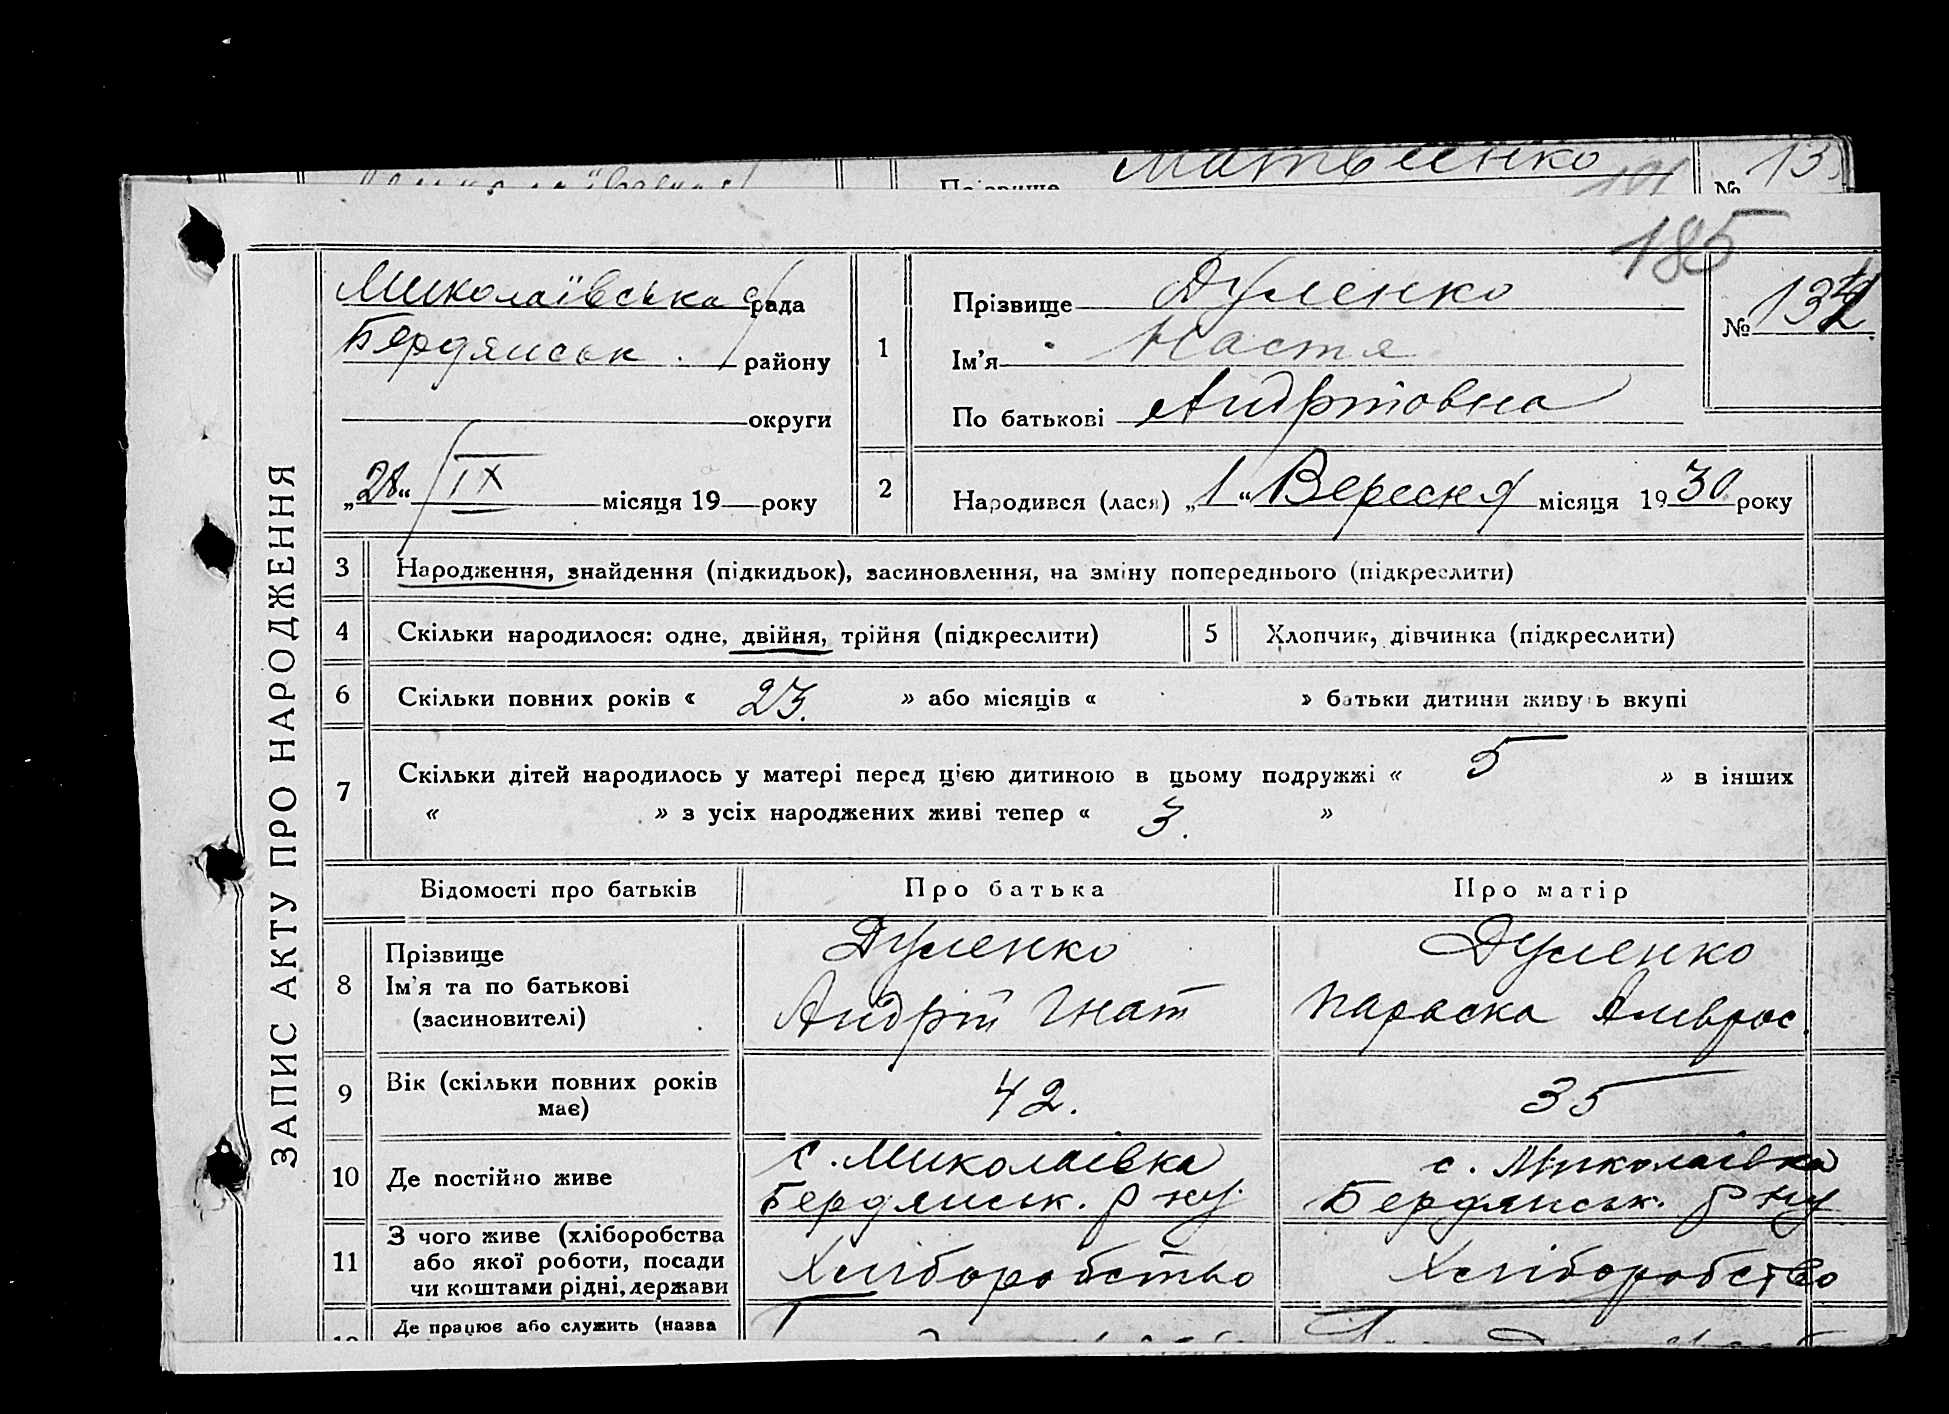 Матвиенко
Прізвище
№ 13
185
ЗАПИС АКТУ ПРО НАРОДЖЕННЯ
Миколаївська рада
Бердянськ. району
округи
„28“ IX місяця 19 року
1
Прізвище Дуленко
Ім'я Настя
По батькові Андріівна
№ 134
2
Народився (лася) „1“ Вересня місяця 1930 року
3 Народження, знайдення (підкидьок), засиновлення, на зміну попереднього (підкреслити)
4 Скільки народилося: одне, двійня, трійня (підкреслити)
5 Хлопчик, дівчинка (підкреслити)
6 Скільки повних років « 23. » або місяців « » батьки дитини живуть вкупі
7 Скільки дітей народилось у матері перед цією дитиною в цьому подружжі « 5 » в інших
« » з усіх народжених живі тепер « 3. »
Відомості про батьків Про батька Про матір
8 Прізвище
Ім'я та по батькові
(засиновителі)
Дуленко
Андрій Гнат
Дуленко
Параска Амврос.
9 Вік (скільки повних років
має)
42.
35
10 Де постійно живе
с. Миколаівка
Бердянськ. р ну
с. Миколаівка
Бердянськ. р ну
11 З чого живе (хліборобства
або якої роботи, посади
чи коштами рідні, держави
Хліборобство
Хліборобство
Де працює або служить (назва